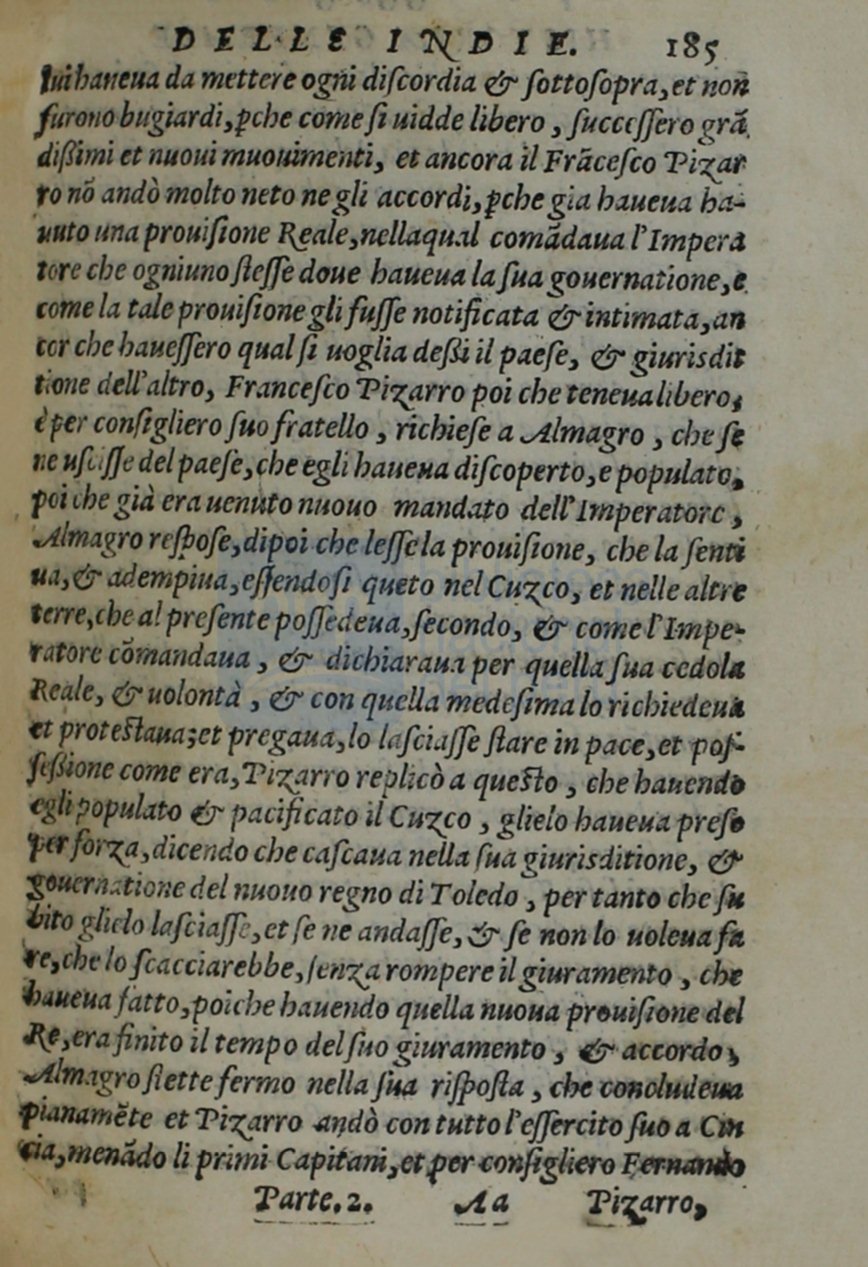 DELLE INDIE. 185
lui haueua da mettere ogni diſcordia & ſottoſopra, et non
furono bugiardi, ꝑche come ſi uidde libero, ſucceſſero grã
dißimi et nuoui muouimenti, et ancora il Frãceſco Pizar
ro nõ andò molto neto ne gli accordi, ꝑche gia haueua ha-
uuto una prouiſione Reale, nellaqual comãdaua l'Impera
tore che ogniuno ſteſſe doue haueua la ſua gouernatione, e
come la tale prouiſione gli fuſſe notificata & intimata, an
cor che haueſſero qual ſi uoglia deßi il paeſe, & giurisdit
tione dell'altro, Franceſco Pizarro poi che teneua libero,
è per conſigliero ſuo fratello, richieſe a Almagro, che ſe
ne uſciſſe del paeſe, che egli haueua diſcoperto, e populato,
poi che già era uenuto nuouo mandato dell'Imperatore,
Almagro reſpoſe, dipoi che leſſe la prouiſione, che la ſenti
ua, & adempiua, eſſendoſi queto nel Cuzco, et nelle altre
terre, che al preſente poſſedeua, ſecondo, & come l'Impe-
ratore cõmandaua, & dichiaraua per quella ſua cedola
Reale, & uolontà, & con quella medeſima lo richiedeua
et proteſtaua; et pregaua, lo laſciaſſe ſtare in pace, et poſ-
ſeßione come era, Pizarro replicò a queſto, che hauendo
egli populato & pacificato il Cuzco, glielo haueua preſo
per forza, dicendo che caſcaua nella ſua giurisditione, &
gouernatione del nuouo regno di Toledo, per tanto che ſu
bito glielo laſciaſſe, et ſe ne andaſſe, & ſe non lo uoleua fa
re, che lo ſcacciarebbe, ſenza rompere il giuramento, che
haueua fatto, poiche hauendo quella nuoua prouiſione del
Re, era finito il tempo del ſuo giuramento, & accordo,
Almagro ſtette fermo nella ſua riſpoſta, che concludeua
pianamẽte et Pizarro andò con tutto l'eſſercito ſuo a Cin
cia, menãdo li primi Capitani, et per conſigliero Fernando
Parte. 2. Aa Pizarro,